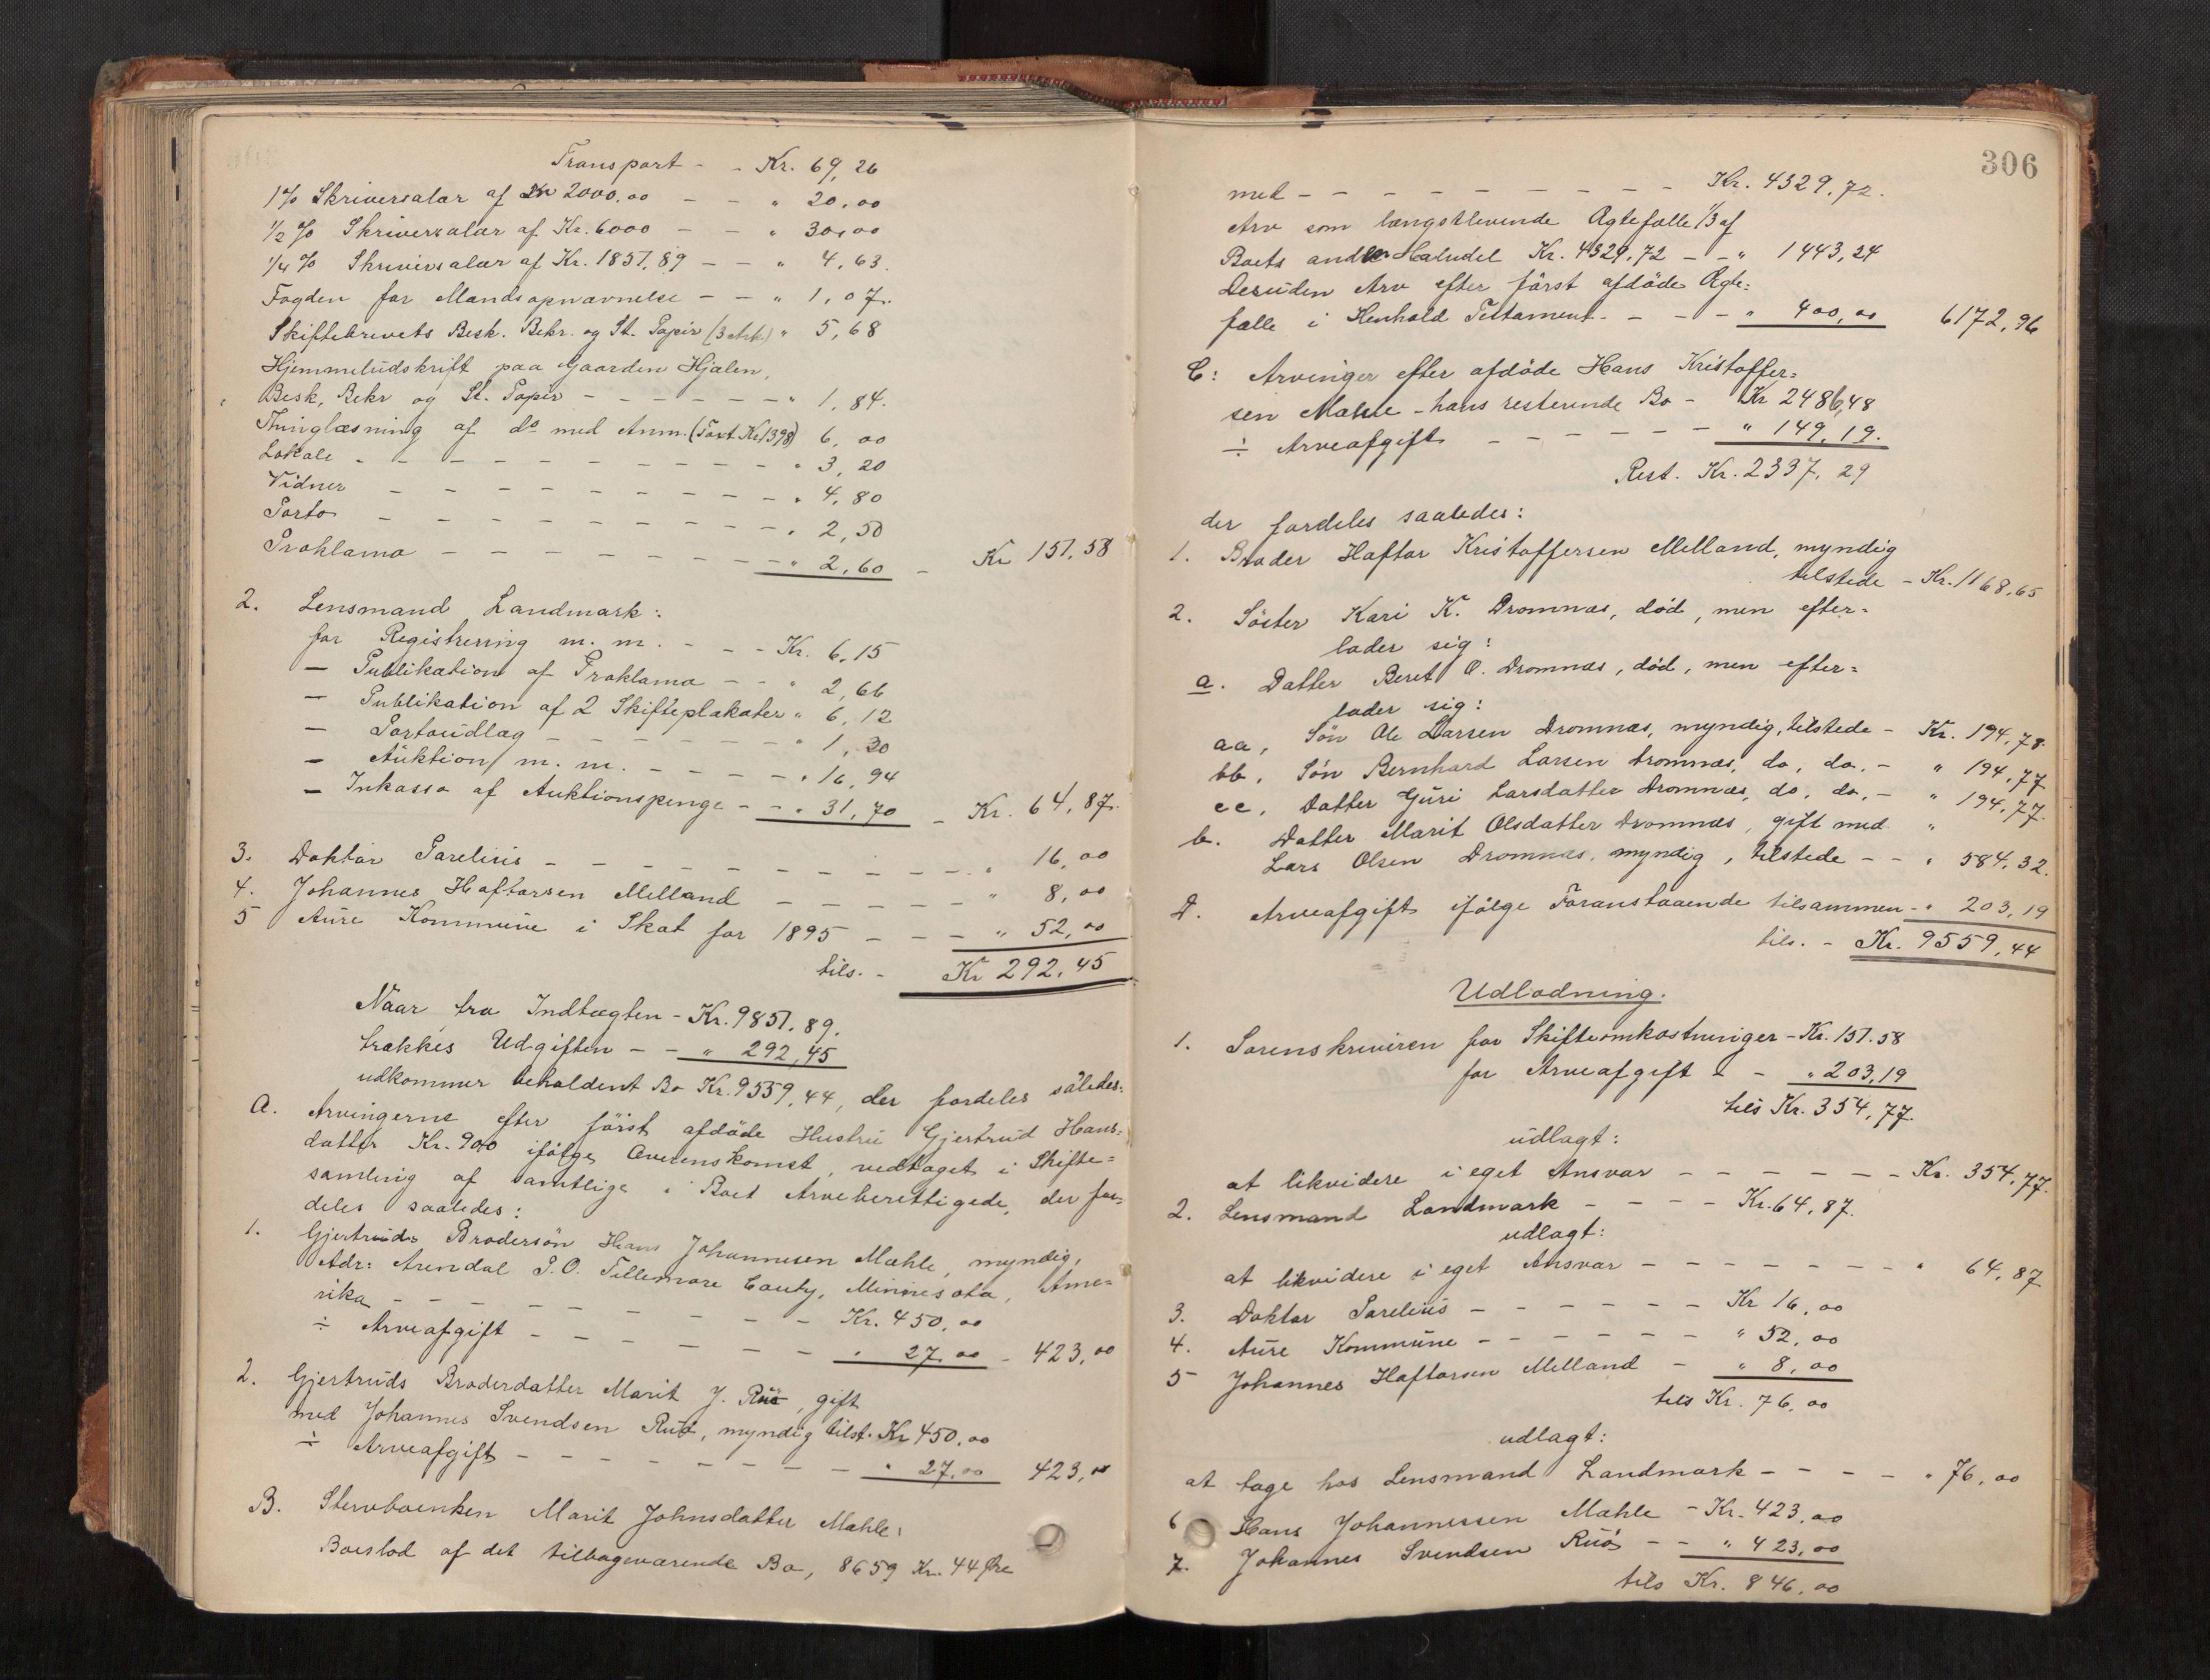 Transport - - Kr. 69,26
1% Skriversalær af Kr 2000.00 - - " 20,00
1/2 % Skriversalær af Kr. 6000 - - " 30,00
1/4 % Skriversalær af Kr. 1851,89 - - " 4,63.
Fogden for Mandsopnævnelse - - " 1,07.
Skiftebrevets Besk. Bekr. og St. Papir (3 Ark) " 5,68
Hjemmeludskrift paa Gaarden Hjalen,
Besk, Bekr og St. Papir - - - - - - " 1,84.
Thinglæsning af do med Anm. (Taxt Kr 1398) 6,00
Lokale - - - - - - - - - - " 3,20
Vidner - - - - - - - - - - " 4,80
Porto - - - - - - - - - - " 2,50
Proklama - - - - - - - - - " 2,60 - Kr 151,58
2. Lensmand Landmark:
for Registrering m. m. - - - Kr. 6,15
— Publikation af Proklama - - " 2,66
— Publikation af 2 Skifteplakater " 6,12
— Portoudlæg - - - - - - " 1,30
— Auktion m. m. - - - - - " 16,94
— Inkasso af Auktionspenge - - " 31,70 - Kr. 64,87.
3. Doktor Parelius - - - - - - - - - - " 16,00
4. Johannes Haftorsen Melland - - - - - " 8,00
5 Aure Kommune i Skat for 1895 - - - " 52,00
tils. - Kr 292,45
Naar fra Indtægten - Kr. 9851.89.
trækkes Udgiften - - " 292,45
udkommer beholdent Bo Kr. 9559,44, der fordeles således:
A. Arvingerne efter först afdöde Hustru Gjertrud Hans=
datter Kr. 900 ifölge Overenskomst, vedtaget i Skifte=
samling af samtlige i Boet Arveberettigede, der for=
deles saaledes:
1. Gjertruds Brodersön Hans Johannesen Mæhle, myndig,
Adr: Arendal P.O. Tillemore County, Minnesota, Ame=
rika - - - - - - - - Kr. 450,00
÷ Arveafgift - - - - - - " 27,00 - 423,00
2. Gjertruds Broderdatter Marit J. Ruö, gift
med Johannes Svendsen Ruö, myndig tilst. Kr 450,00
÷ Arveafgift - - - - - - - - " 27,00 423,00
B. Stervboenken Marit Johnsdatter Mæhle:
Boeslod af det tilbageværende Bo, 8659 Kr. 44 Øre
306
med - - - - - - - - - - Kr. 4329,72.
Arv som længstlevende Ægtefælle 1/3 af
Boets anden Halvdel Kr. 4329,72 - - " 1443,24
Desuden Arv efter först afdöde Ægte=
fælle i Henhold Testament - - - " 400,00 6172,96
C: Arvinger efter afdöde Hans Kristoffer=
sen Mæhle - hans resterende Bo - Kr 2486,48
÷ Arveafgift - - - - - - " 149,19.
Rest. Kr. 2337,29
der fordeles saaledes:
1. Broder Haftor Kristoffersen Melland, myndig
tilstede - Kr. 1168,65
2. Söster Kari K. Dromnæs, död, men efter=
lader sig:
a. Datter Beret O. Dromnæs, död, men efter=
lader sig:
aa, Sön Ole Larsen Dromnæs, myndig, tilstede - Kr. 194,78.
bb, Sön Bernhard Larsen Dromnæs, do, do, - " 194,77
cc, Datter Guri Larsdatter Dromnæs, do, do, - " 194,77.
b. Datter Marit Olsdatter Dromnæs, gift med "
Lars Olsen Dromnæs, myndig, tilstede - - " 584,32.
D. Arveafgift ifölge Foranstaaende tilsammen - " 203,19
tils. - Kr. 9559,44
Udlodning.
1. Sorenskriveren for Skifteomkostninger - Kr. 151.58
for Arveafgift - - " 203,19
tils Kr. 354,77.
udlagt:
at likvidere i eget Ansvar - - - - - - - Kr. 354,77.
2. Lensmand Landmark - - - - Kr. 64,87.
udlagt:
at likvidere i eget Ansvar - - - - - - - - " 64,87
3. Doktor Parelius - - - - - - Kr 16,00
4. Aure Kommune - - - - - - " 52,00
5 Johannes Haftorsen Melland - " 8,00
tils Kr. 76,00
udlagt:
at tage hos Lensmand Landmark - - - - " 76,00
6 Hans Johannessen Mæhle - Kr. 423,00
7. Johannes Svendsen Ruö - - " 423,00
tils Kr. 846,00